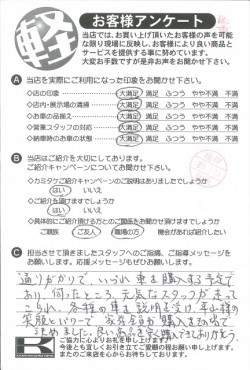 軽
お客様アンケート
当店では、お買い上げ頂いたお客様の声を可能
な限り現場に反映し、お客様により良い商品と
サービスを提供する事に努めています。
大変お手数ですが是非お声をお聞かせ下さい。
A 当店を実際にご利用になった印象をお聞かせ下さい。
◇店の印象 大満足 満足 ふつう やや不満 不満
◇店内・展示場の清掃 大満足 満足 ふつう やや不満 不満
◇お車の品揃え 大満足 満足 ふつう やや不満 不満
◇営業スタッフの対応 大満足 満足 ふつう やや不満 不満
◇納車時のお車の状態 大満足 満足 ふつう やや不満 不満
B 当店はご紹介を大切にしております。
ご紹介キャンペーンについてお聞かせ下さい。
◇カミタケご紹介キャンペーンのご説明はありましたでしょうか
はい いいえ
◇ご紹介頂けますでしょうか
はい いいえ
◇具体的にご紹介頂ける方とのご関係をお聞かせ頂けますでしょうか
ご親族 ご友人 職場の方 機会があれば紹介したい
C 担当させて頂きましたスタッフへのご指摘、ご指導メッセージを
お願いします。応援メッセージもぜひお願いします。
通りがかりで、いろいろ車を購入する予定で
あり、伺ったところ、元気なスタッフが走って
こられ、各種の車を説明を受け、
笑顔とパワーで、家族全員が購入する
良い商品を安く購入できありがとう。
K
ご協力に心よりお礼を申し上げます。
今後とも宜しくお引き立てご愛顧の程お願い申し上げます。
またのご来店を心からお待ちしております。